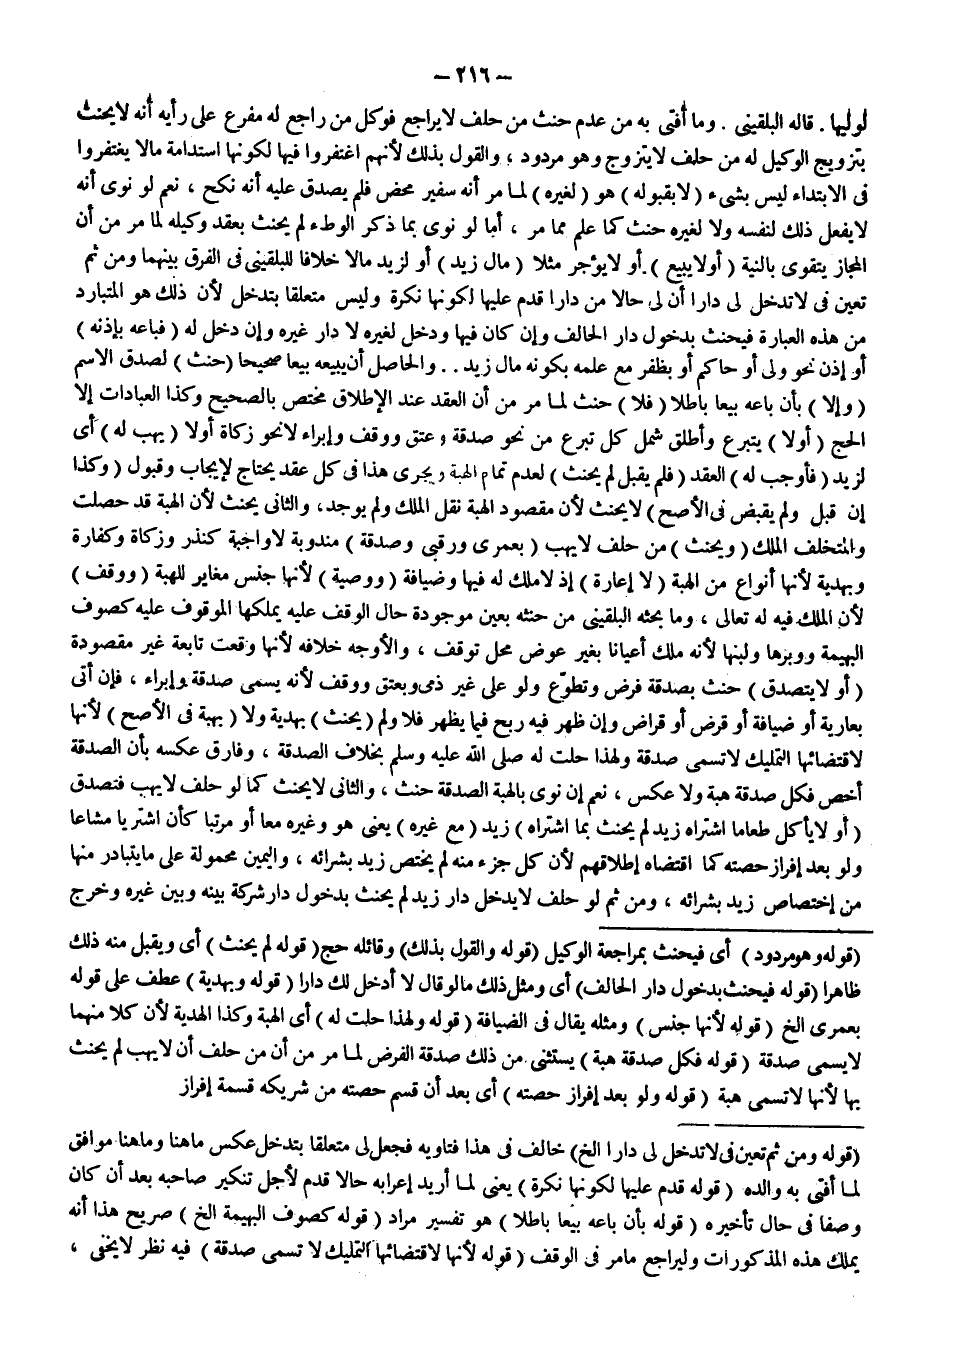 – ٢١٦ –
لوليها . قاله البلقينى . وما أفتى به من عدم حنث من حلف لايراجع فوكل من راجع له مفرع على رأيه أنه لايحنث
بتزويج الوكيل له من حلف لايتزوج وهو مردود ، والقول بذلك لأنهم اغتفروا فيها لكونها استدامة مالا يغتفروا
فى الابتداء ليس بشىء ( لابقبوله ) هو ( لغيره ) لما مر أنه سفير محض فلم يصدق عليه أنه نكح ، نعم لو نوى أنه
لايفعل ذلك لنفسه ولا لغيره حنث كما علم مما مر ، أما لو نوى بما ذكر الوطء لم يحنث بعقد وكيله لما مر من أن
المجاز يتقوى بالنية ( أولايبيع ) . أو لايؤجر مثلا ( مال زيد ) أو لزيد مالا خلافا للبلقينى فى الفرق بينهما ومن ثم
تعين فى لاتدخل لى دارا أن لى حالا من دارا قدم عليها لكونها نكرة وليس متعلقا بتدخل لأن ذلك هو المتبارد
من هذه العبارة فيحنث بدخول دار الحالف وإن كان فيها ودخل لغيره لا دار غيره وإن دخل له ( فباعه بإذنه )
أو إذن نحو ولى أو حاكم أو بظفر مع علمه بكونه مال زيد . . والحاصل أن يبيعه بيعا صحيحا (حنث ) لصدق الاسم
( وإلا ) بأن باعه بيعا باطلا ( فلا ) حنث لما مر من أن العقد عند الإطلاق مختص بالصحيح وكذا العبادات إلا
الحج ( أولا ) يتبرع وأطلق شمل كل تبرع من نحو صدقة وعتق ووقف وإبراء لانحو زكاة أولا ( يهب له ) أى
لزيد ( فأوجب له ) العقد ( فلم يقبل لم يحنث ) لعدم تمام الهبة ويجرى هذا فى كل عقد يحتاج لإيجاب وقبول ( وكذا
إن قبل ولم يقبض فى الأصح ) لايحنث لأن مقصود الهبة نقل الملك ولم يوجد ، والثانى يحنث لأن الهبة قد حصلت
والمتخلف الملك ( ويحنث ) من حلف لايهب ( بعمرى ورقبى وصدقة ) مندوبة لاواجبة كنذر وزكاة وكفارة
وبهدية لأنها أنواع من الهبة ( لا إعارة ) إذ لاملك له فيها وضيافة ( ووصية ) لأنها جنس مغاير للهبة ( ووقف )
لأن الملك فيه له تعالى ، وما بحثه البلقينى من حنثه بعين موجودة حال الوقف عليه يملكها الموقوف عليه كصوف
البهيمة ووبرها ولبنها لأنه ملك أعيانا بغير عوض محل توقف ، والأوجه خلافه لأنها وقعت تابعة غير مقصودة
( أو لايتصدق ) حنث بصدقة فرض وتطوّع ولو على غير ذمى وبعتق ووقف لأنه يسمى صدقة وإبراء ، فإن أتى
بعارية أو ضيافة أو قرض أو قراض وإن ظهر فيه ربح فيما يظهر فلا ولم ( يحنث ) بهدية ولا ( بهبة فى الأصح ) لأنها
لاقتضائها التمليك لاتسمى صدقة ولهذا حلت له صلى الله عليه وسلم بخلاف الصدقة ، وفارق عكسه بأن الصدقة
أخص فكل صدقة هبة ولا عكس ، نعم إن نوى بالهبة الصدقة حنث ، والثانى لايحنث كما لو حلف لايهب فتصدق
( أو لايأكل طعاما اشتراه زيد لم يحنث بما اشتراه ) زيد ( مع غيره ) يعنى هو وغيره معا أو مرتبا كأن اشتريا مشاعا
ولو بعد إفراز حصته كما اقتضاه إطلاقهم لأن كل جزء منه لم يختص زيد بشرائه ، واليمين محمولة على مايتبادر منها
من إختصاص زيد بشرائه ، ومن ثم لو حلف لايدخل دار زيد لم يحنث بدخول دار شركة بينه وبين غيره وخرج
( قوله وهو مردود ) أى فيحنث بمراجعة الوكيل (قوله والقول بذلك) وقائله حج( قوله لم يحنث ) أى ويقبل منه ذلك
ظاهرا (قوله فيحنث بدخول دار الحالف) أى ومثل ذلك مالو قال لا أدخل لك دارا ( قوله وبهدية ) عطف على قوله
بعمرى الخ ( قوله لأنها جنس ) ومثله يقال فى الضيافة ( قوله ولهذا حلت له ) أى الهبة وكذا الهدية لأن كلا منهما
لايسمى صدقة ( قوله فكل صدقة هبة ) يستثنى من ذلك صدقة الفرض لما مر من أن من حلف أن لايهب لم يحنث
بها لأنها لاتسمى هبة ( قوله ولو بعد إفراز حصته ) أى بعد أن قسم حصته من شريكه قسمة إفراز
(قوله ومن ثم تعين فى لاتدخل لى دارا الخ) خالف فى هذا فتاويه فجعل لى متعلقا بتدخل عكس ماهنا وماهنا موافق
لما أفتى به والده ( قوله قدم عليها لكونها نكرة ) يعنى لما أريد إعرابه حالا قدم لأجل تنكير صاحبه بعد أن كان
وصفا فى حال تأخيره ( قوله بأن باعه بيعا باطلا ) هو تفسير مراد ( قوله كصوف البهيمة الخ ) صريح هذا أنه
يملك هذه المذكورات وليراجع مامر فى الوقف ( قوله لأنها لاقتضائها التمليك لا تسمى صدقة ) فيه نظر لايخفى ،